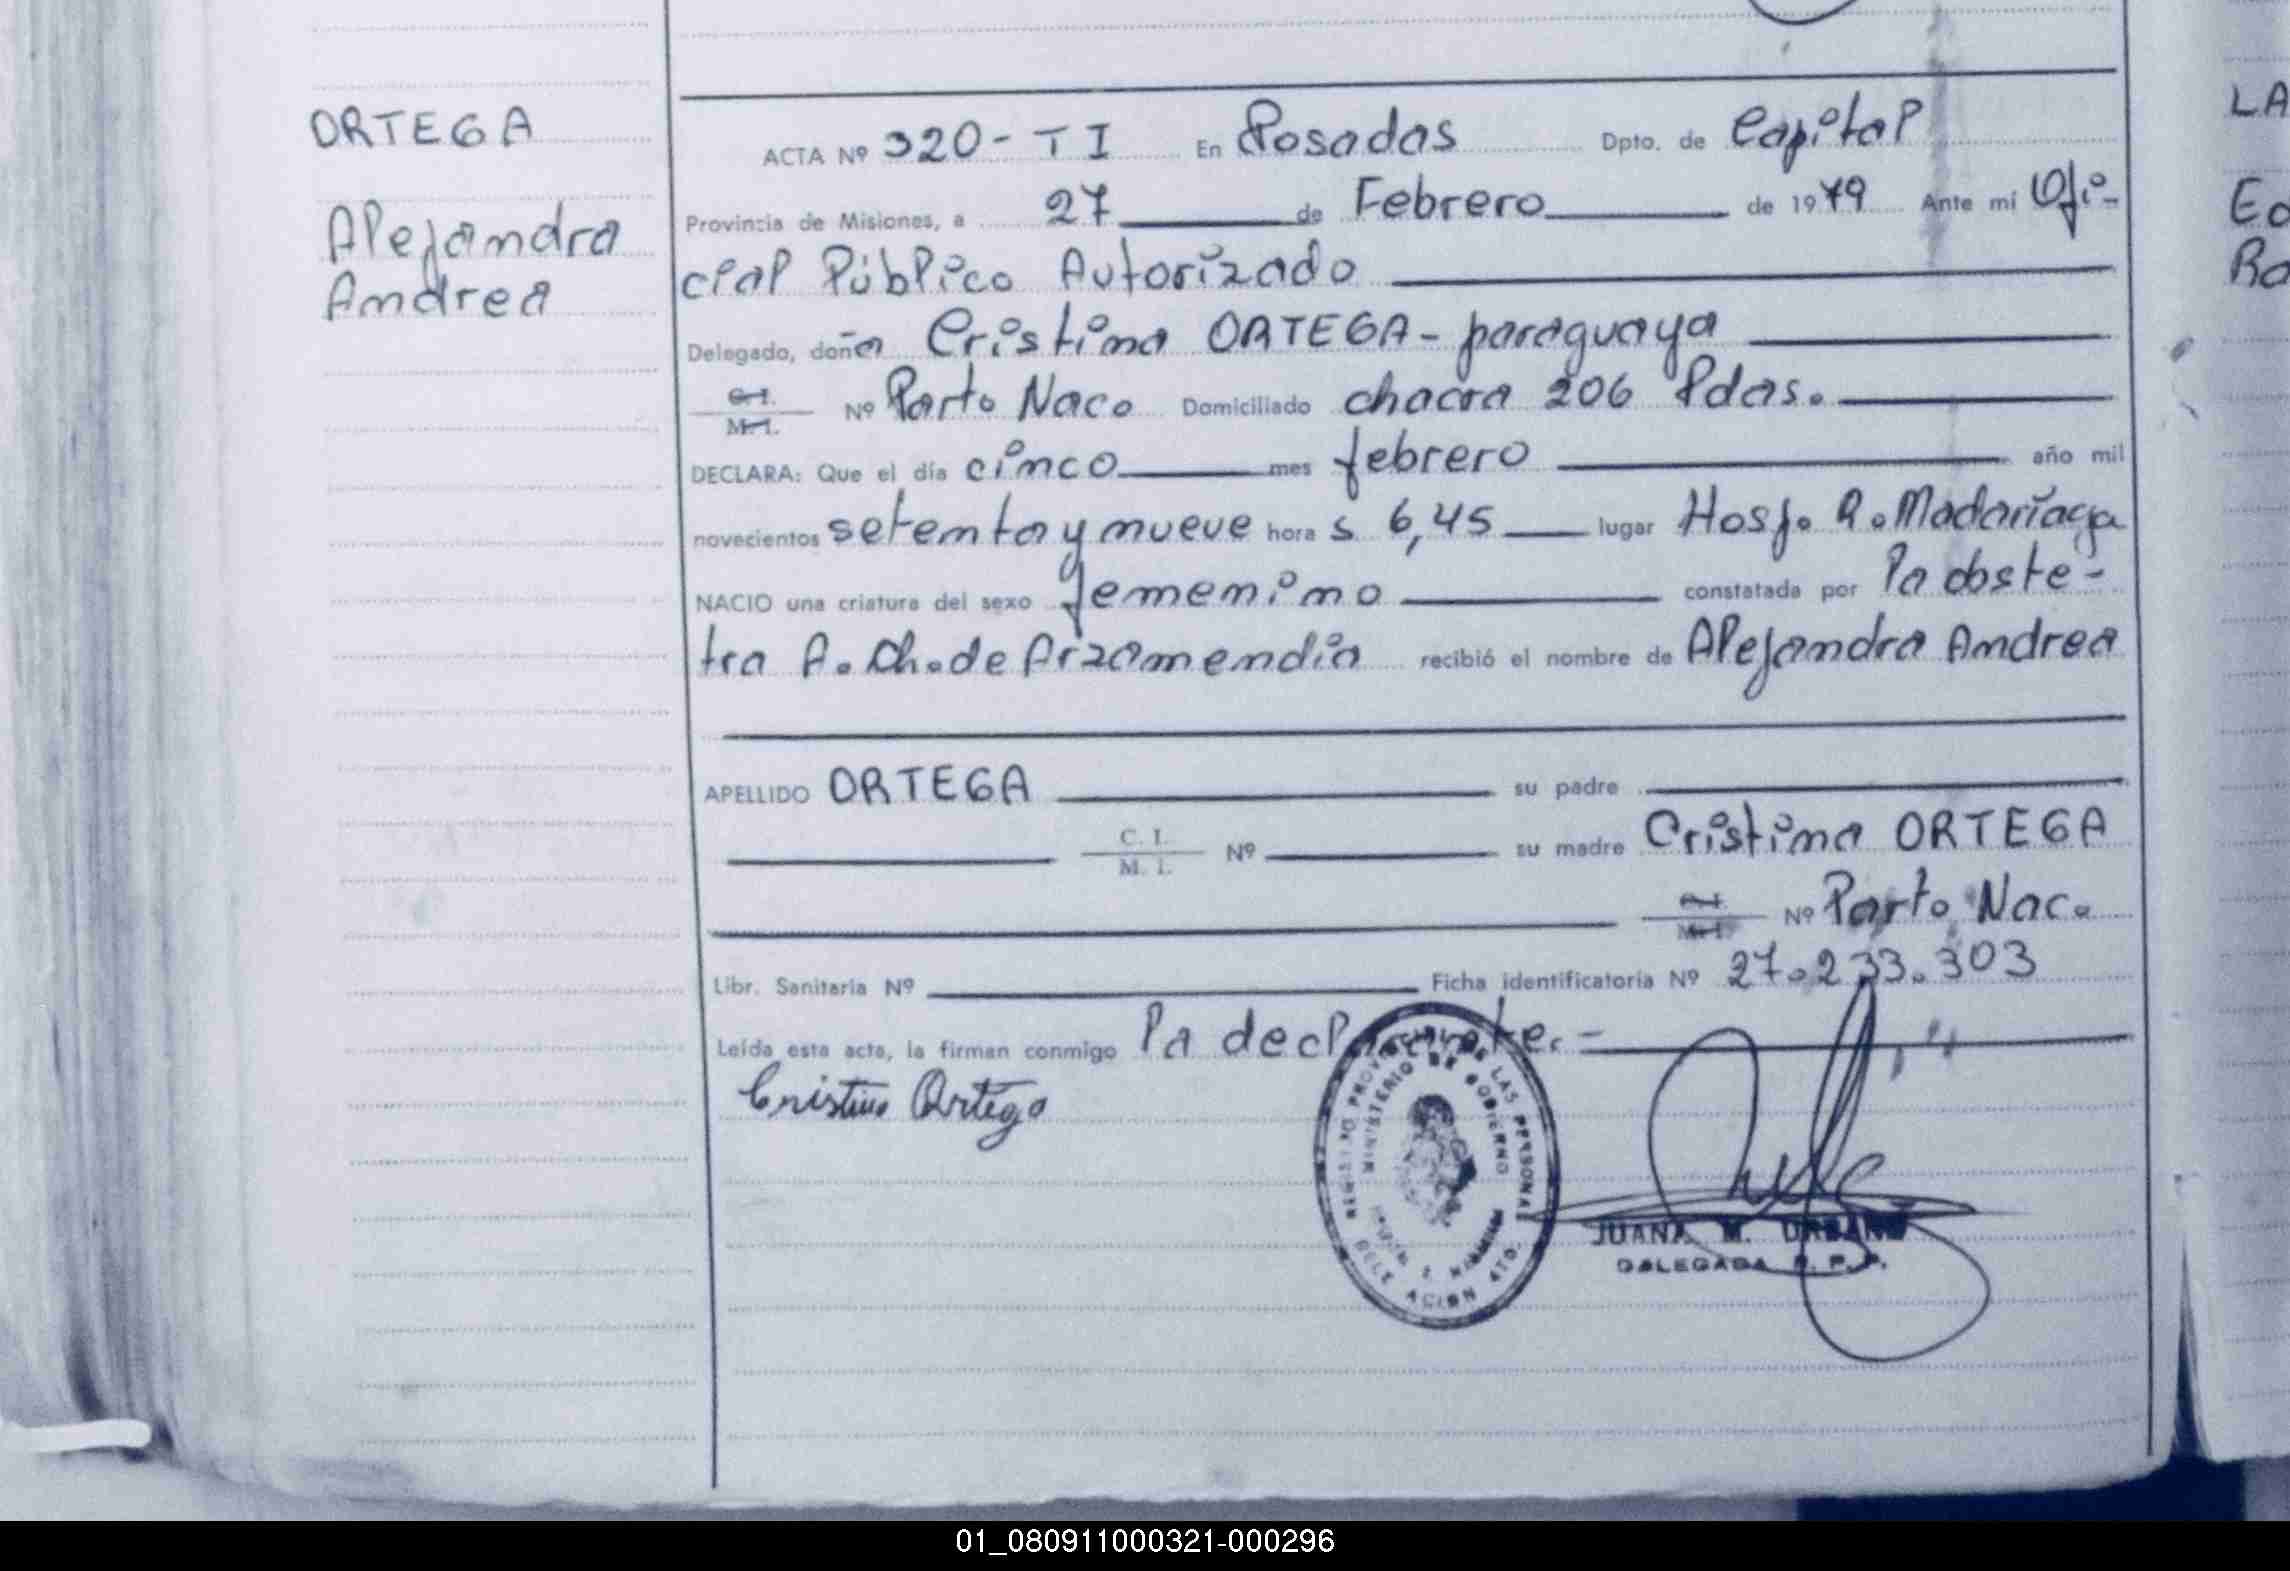 ORTEGA
Alejandra
Andrea
ACTA Nº 320-TI En Posadas Dpto. de Capital
Provincia de Misiones, a 27 de Febrero de 1979 Ante mí Ofi-
cial Público Autorizado
Delegado, doña Cristina ORTEGA- paraguaya
C.I.
M.I.
Nº Parto Naco Domiciliado chacra 206 Pdas.
DECLARA: Que el día cinco mes febrero año mil
novecientos setenta y nueve hora s 6,45 lugar Hosp. R. Madariaga
NACIO una criatura del sexo femenino constatada por la obste-
tra A. Ch. de Arzamendia recibió el nombre de Alejandra Andrea
APELLIDO ORTEGA su padre
C. I.
M. I.
Nº su madre Cristina ORTEGA
C.I.
M.I.
Nº Parto Nac.
Libr. Sanitaria Nº Ficha identificatoria Nº 27.233.303
Leída esta acta, la firman conmigo la declarante.-
Cristina Ortega
REGISTRO PROVINCIAL DE LAS PERSONAS
MINISTERIO DE GOBIERNO
DELEGACION 4TO.
JUANA M. URBANO
DELEGADA R. P. P.
LA
Ed
Ro
01_080911000321-000296